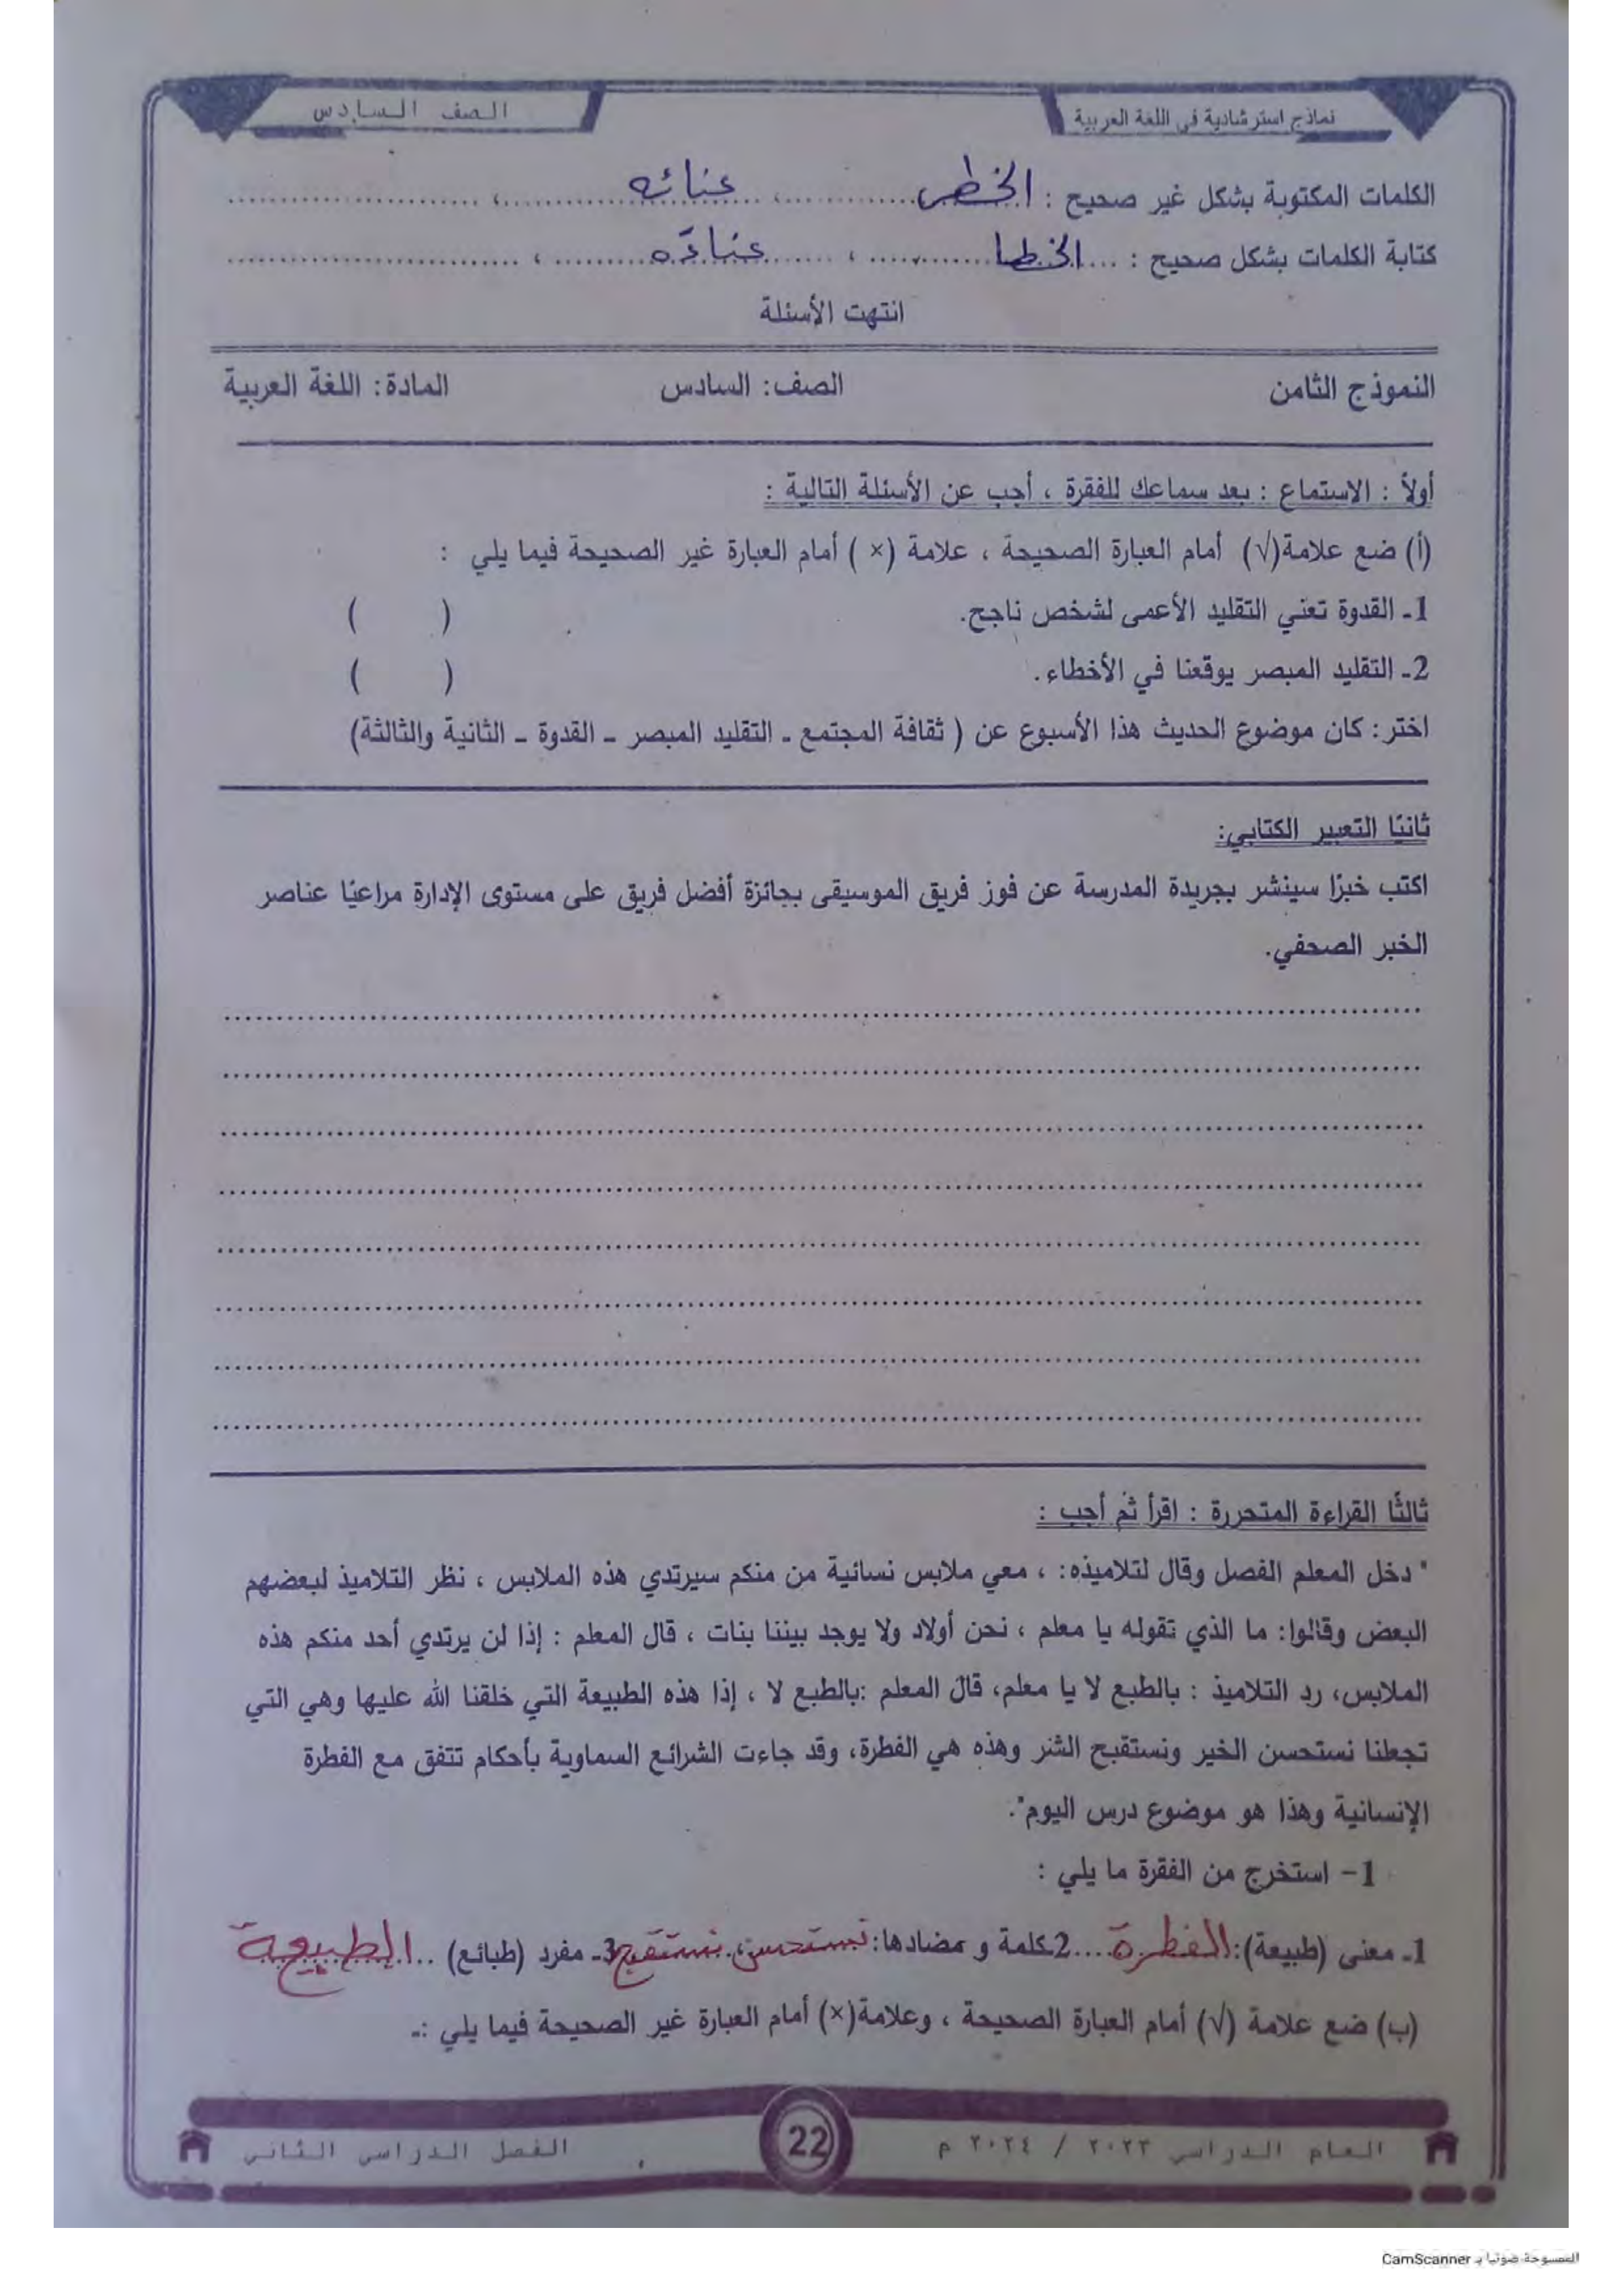 نماذج استرشادية في اللغة العربية
الصف السادس
الكلمات المكتوبة بشكل غير صحيح : الخطى ، عنائه ،
كتابة الكلمات بشكل صحيح : الخطا ، عناءه ،
انتهت الأسئلة
النموذج الثامن الصف: السادس المادة: اللغة العربية
أولاً : الاستماع : بعد سماعك للفقرة ، أجب عن الأسئلة التالية :
(أ) ضع علامة(√) أمام العبارة الصحيحة ، علامة (× ) أمام العبارة غير الصحيحة فيما يلي :
1ـ القدوة تعني التقليد الأعمى لشخص ناجح. ( )
2ـ التقليد المبصر يوقعنا في الأخطاء. ( )
اختر: كان موضوع الحديث هذا الأسبوع عن ( ثقافة المجتمع ـ التقليد المبصر – القدوة – الثانية والثالثة)
ثانيًا التعبير الكتابي:
اكتب خبرًا سينشر بجريدة المدرسة عن فوز فريق الموسيقى بجائزة أفضل فريق على مستوى الإدارة مراعيًا عناصر
الخبر الصحفي.
ثالثًا القراءة المتحررة : اقرأ ثم أجب :
" دخل المعلم الفصل وقال لتلاميذه: ، معي ملابس نسائية من منكم سيرتدي هذه الملابس ، نظر التلاميذ لبعضهم
البعض وقالوا: ما الذي تقوله يا معلم ، نحن أولاد ولا يوجد بيننا بنات ، قال المعلم : إذا لن يرتدي أحد منكم هذه
الملابس، رد التلاميذ : بالطبع لا يا معلم، قال المعلم :بالطبع لا ، إذا هذه الطبيعة التي خلقنا الله عليها وهي التي
تجعلنا نستحسن الخير ونستقبح الشر وهذه هي الفطرة، وقد جاءت الشرائع السماوية بأحكام تتفق مع الفطرة
الإنسانية وهذا هو موضوع درس اليوم".
1– استخرج من الفقرة ما يلي :
1ـ معنى (طبيعة): الفطرة 2ـ كلمة و مضادها: نستحسن، نستقبح 3ـ مفرد (طبائع) الطبيعة
(ب) ضع علامة (√) أمام العبارة الصحيحة ، وعلامة(×) أمام العبارة غير الصحيحة فيما يلي :ـ
العام الدراسي ٢٠٢٣ / ٢٠٢٤ م
22
الفصل الدراسي الثاني
الممسوحة ضوئيا بـ CamScanner